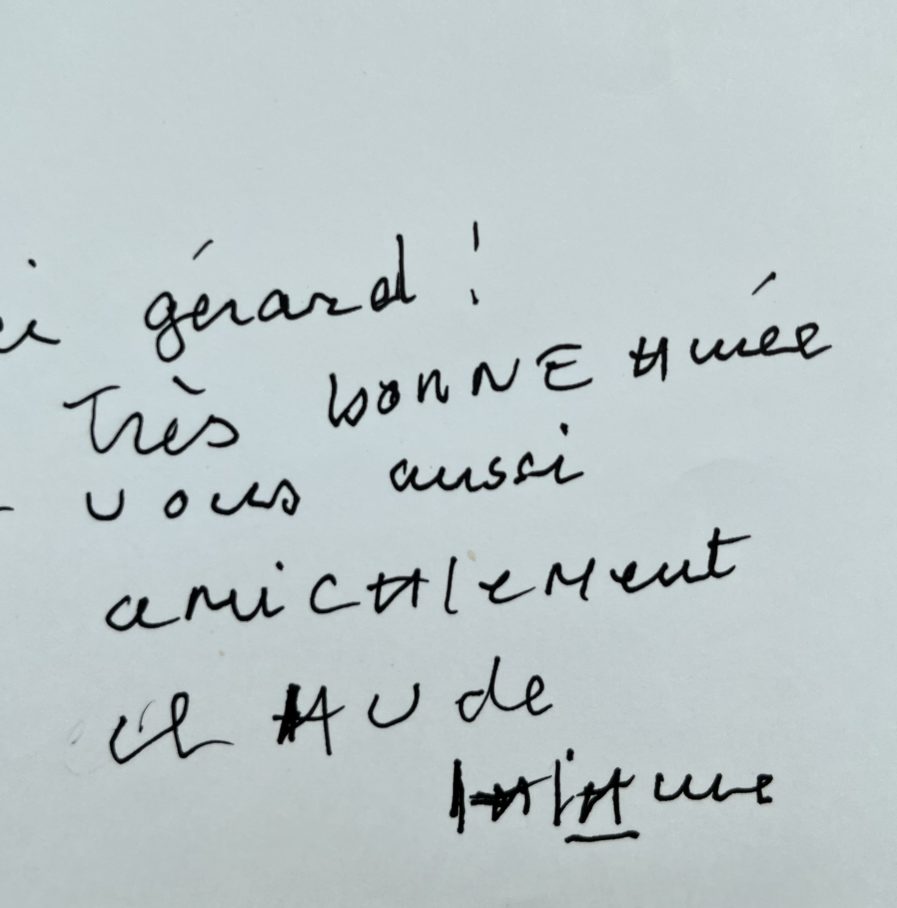 gérard !
Très bonne Année
vous aussi
amicAlement
clAude